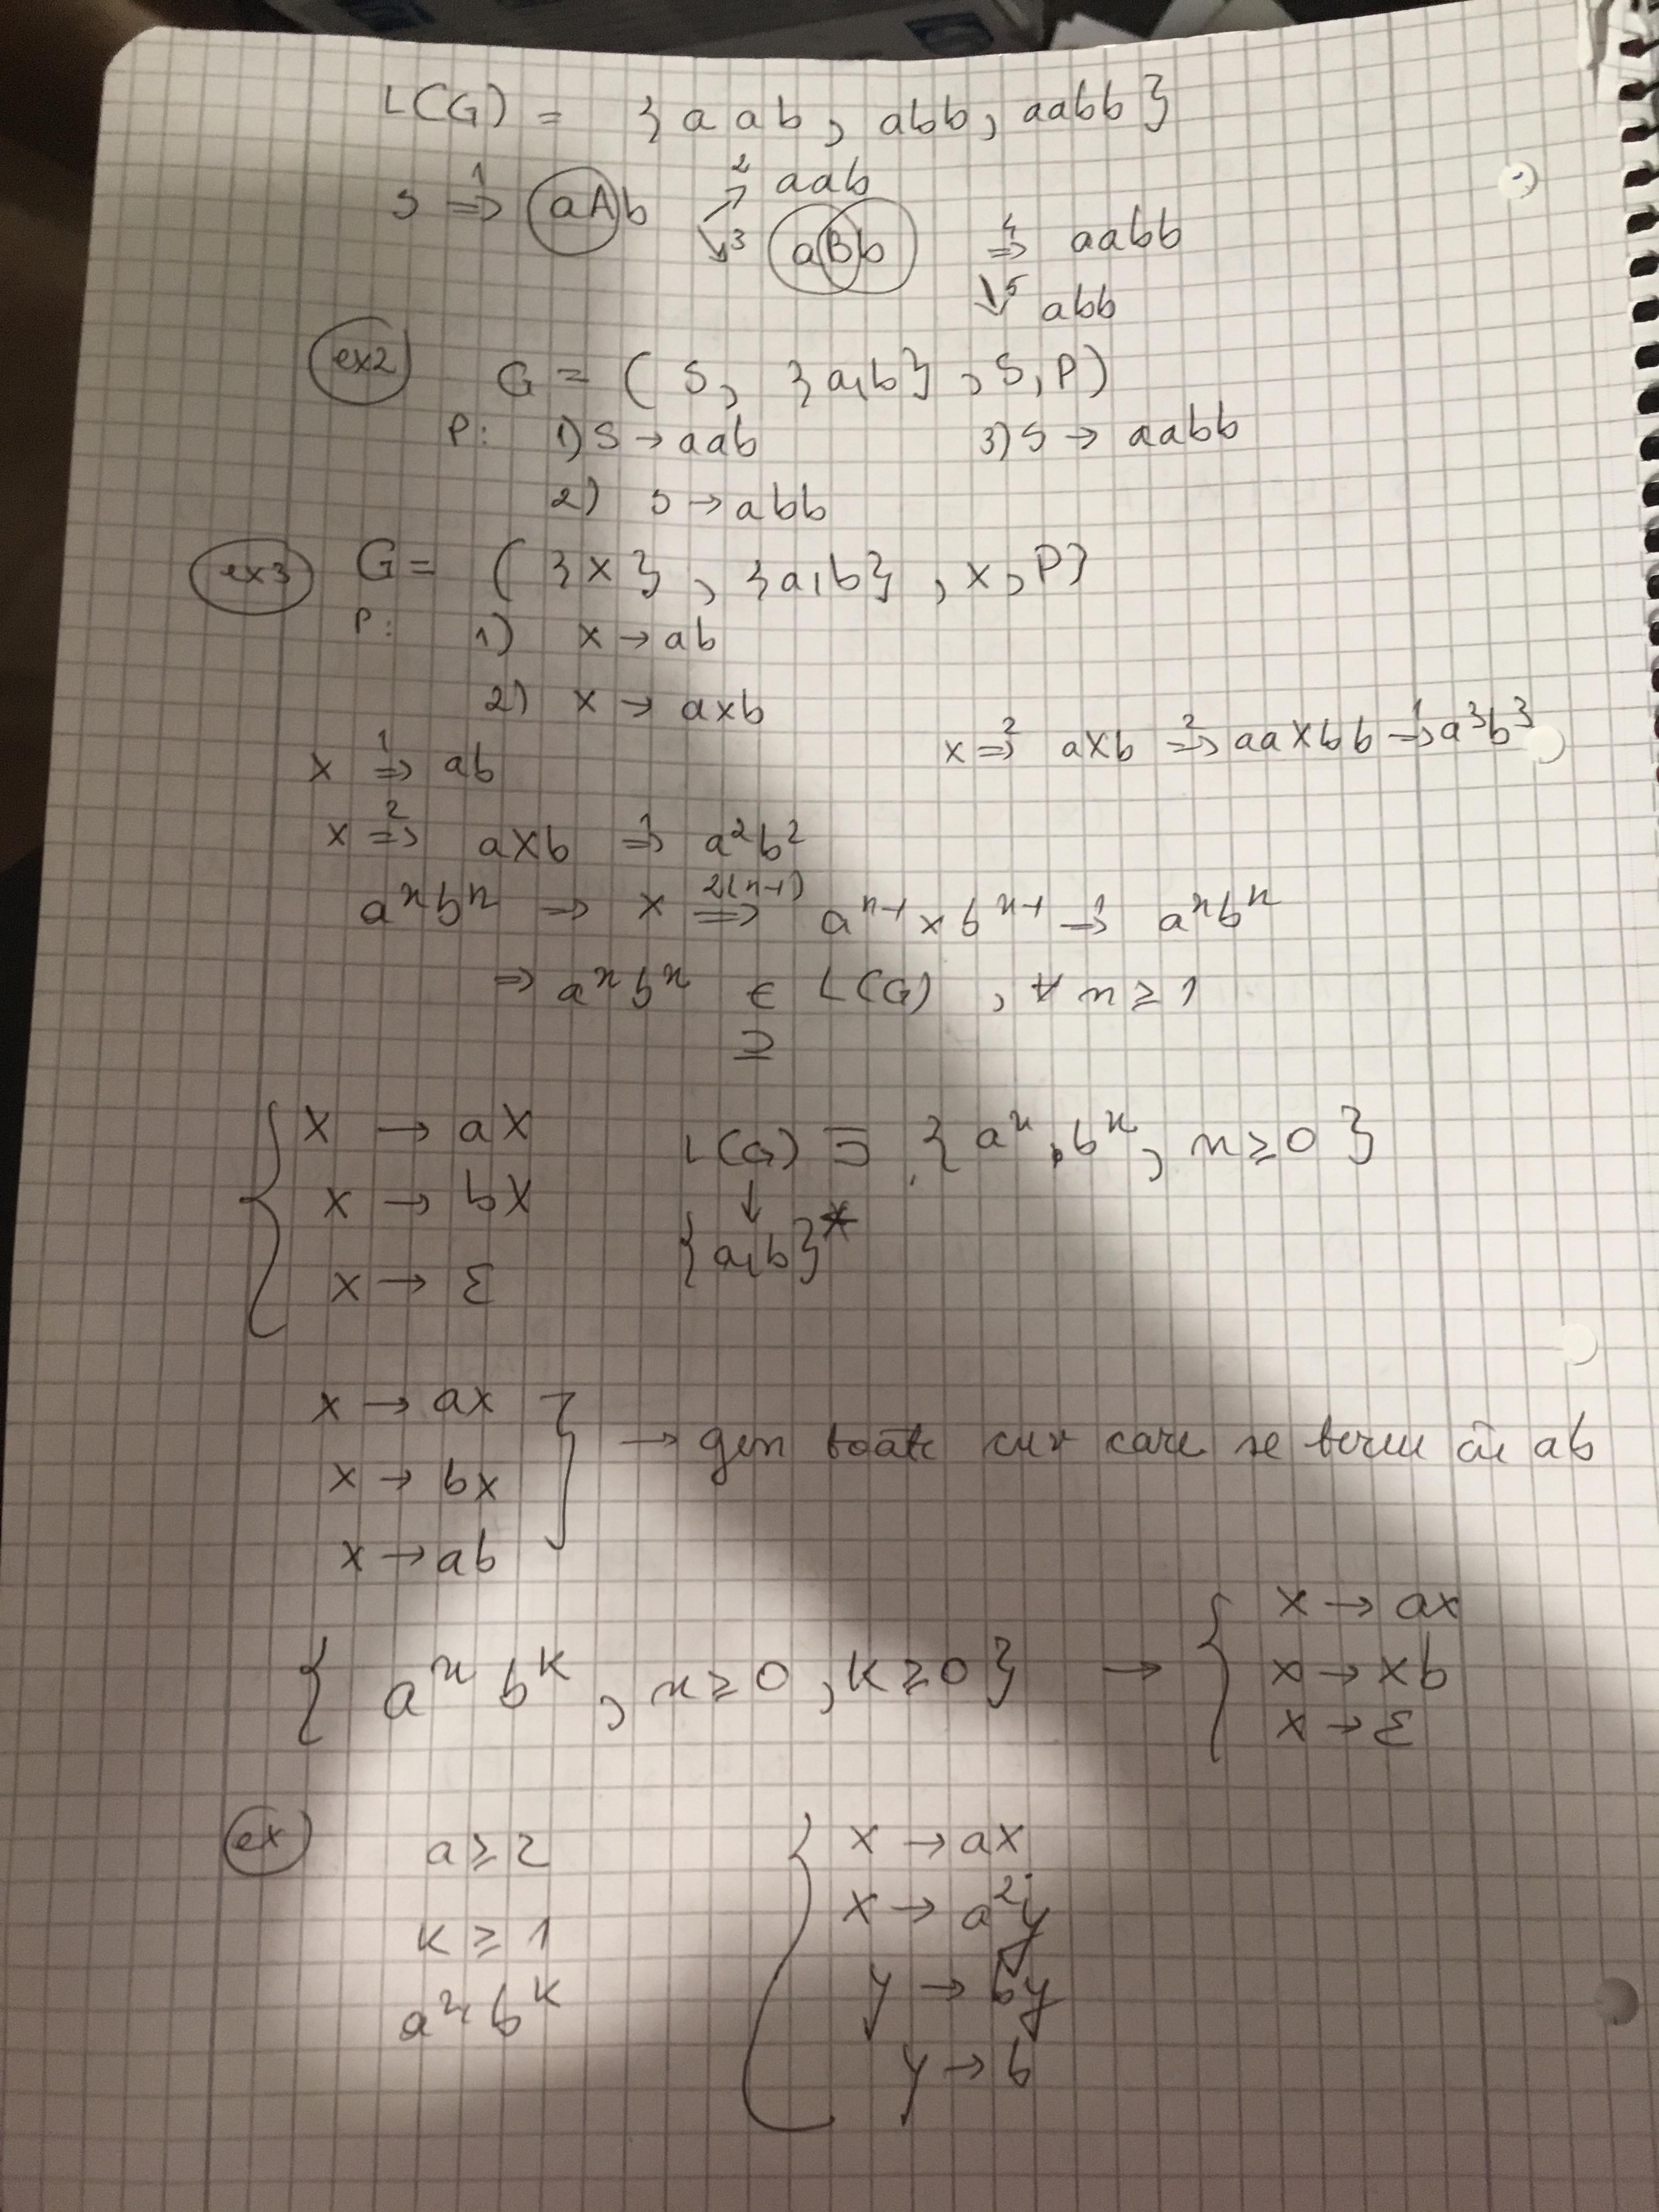 L(G) = {aab, abb, aabb}
S ⇒¹ aAb ↗² aab
↘³ aBb ⇒⁴ aabb
↘⁵ abb
ex2 G = (S, {a,b}, S, P)
P: 1) S → aab 3) S → aabb
2) S → abb
ex3 G = ({x}, {a,b}, x, P}
P: 1) x → ab
2) x → axb
x ⇒¹ ab x ⇒² axb ⇒² aaxbb ⇒¹ a³b³
x ⇒² axb ⇒¹ a²b²
aⁿbⁿ → x ⇒²⁽ⁿ⁻¹⁾ aⁿ⁻¹xbⁿ⁻¹ ⇒¹ aⁿbⁿ
⇒ aⁿbⁿ ∈ L(G), ∀ n ≥ 1
⊇
x → ax L(G) ⊇ {aⁿ, bⁿ, n ≥ 0}
x → bx ↓
x → ε {a,b}*
x → ax
x → bx → gen toate cuv care se term în ab
x → ab
{aⁿbᵏ, n ≥ 0, k ≥ 0} → x → ax
x → xb
x → ε
ex a ≥ 2 x → ax
x → a²y
k ≥ 1 y → by
aⁿbᵏ y → b